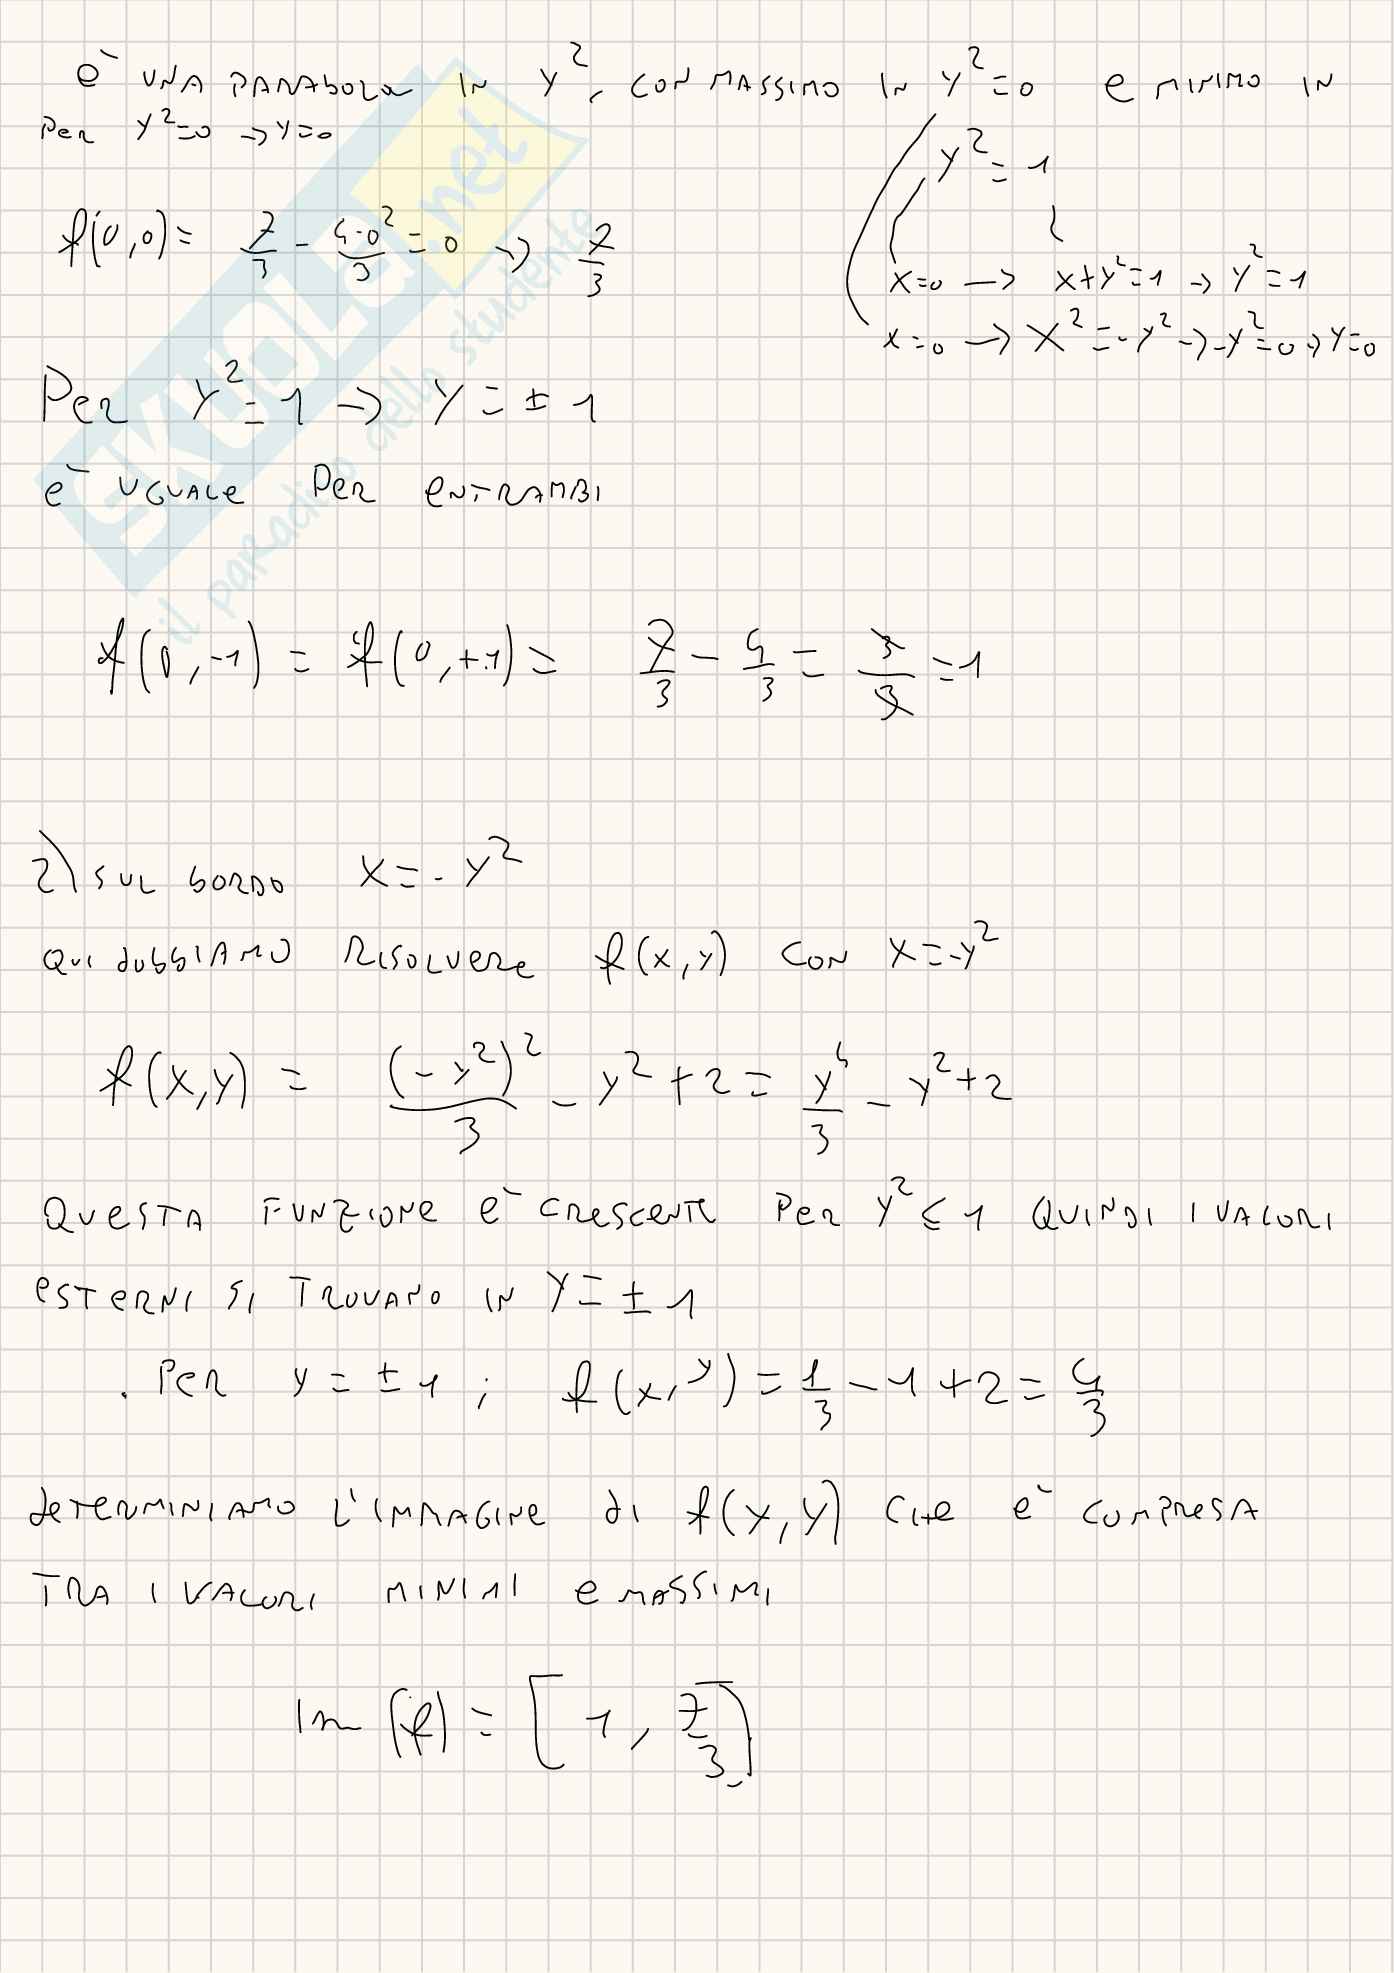 è una parabola in y², con massimo in y²=0 e minimo in
per y²=0 → y=0
y²=1
f(0,0)= 7/3 - 4·0²/3 = 0 → 7/3
x=0 → x+y²=1 → y²=1
x=0 → x²=-y² → -y²=0 → y=0
Per y²=1 → y=±1
è uguale per entrambi
f(0,-1) = f(0,+1) = 7/3 - 4/3 = 3/3 = 1
2) sul bordo x=-y²
qui dobbiamo risolvere f(x,y) con x=-y²
f(x,y) = (-y²)²/3 - y²+2 = y⁴/3 - y²+2
Questa funzione è crescente per y²≤1 quindi i valori
esterni si trovano in y=±1
. Per y=±1; f(x,y)=1/3-1+2=4/3
determiniamo l'immagine di f(x,y) che è compresa
tra i valori minimi e massimi
Im(f) = [1, 7/3]
SKUOLA.net
il paradiso dello studente